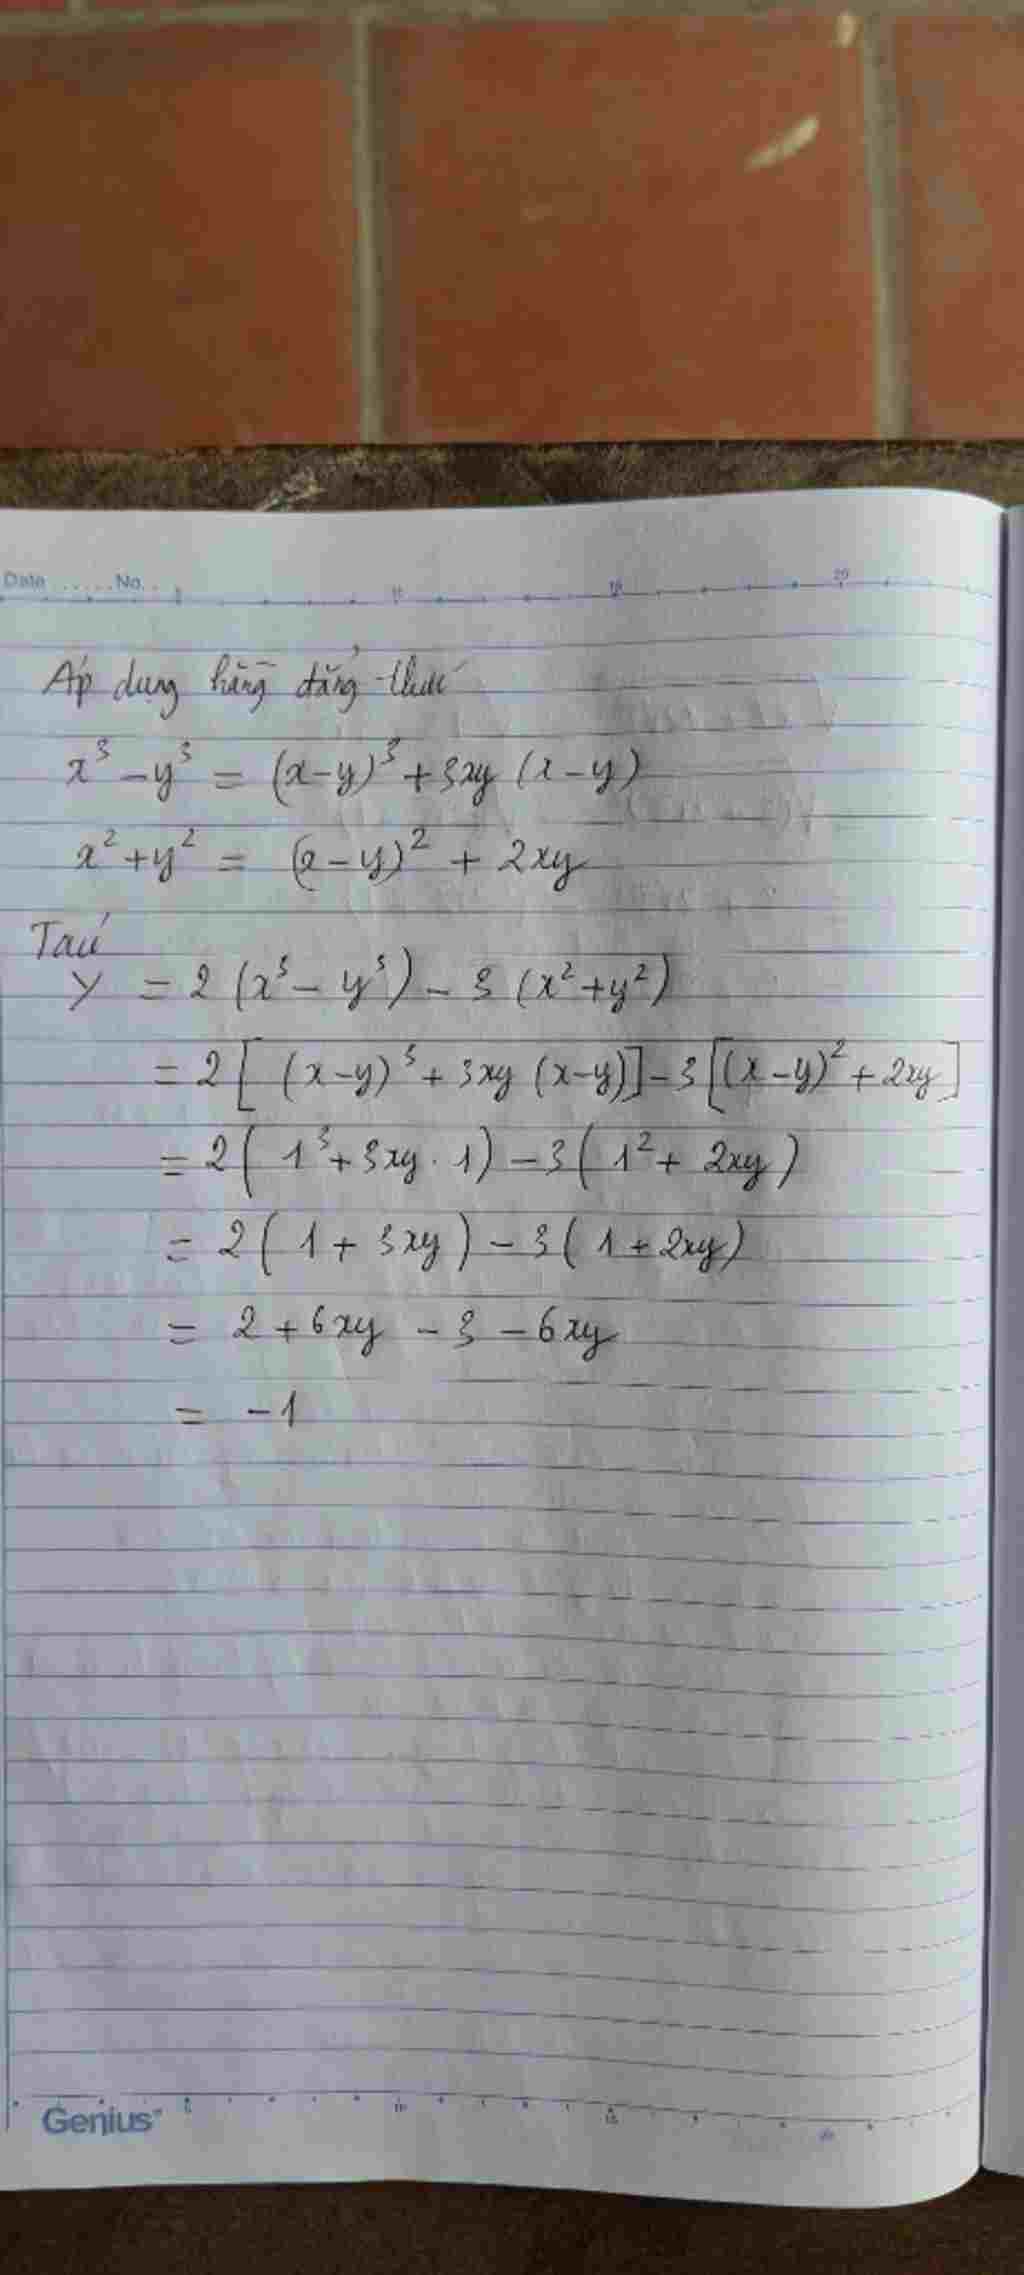 Date ......No...
5 10 15 20
Áp dụng hằng đẳng thức
x³ - y³ = (x-y)³ + 3xy (x-y)
x² + y² = (x-y)² + 2xy
Ta có
Y = 2 (x³ - y³) - 3 (x² + y²)
= 2 [ (x-y)³ + 3xy (x-y)] - 3 [(x-y)² + 2xy]
= 2 ( 1³ + 3xy . 1) - 3 ( 1² + 2xy )
= 2 ( 1 + 3xy ) - 3 ( 1 + 2xy)
= 2 + 6xy - 3 - 6xy
= -1
Genius
5 10 15 20